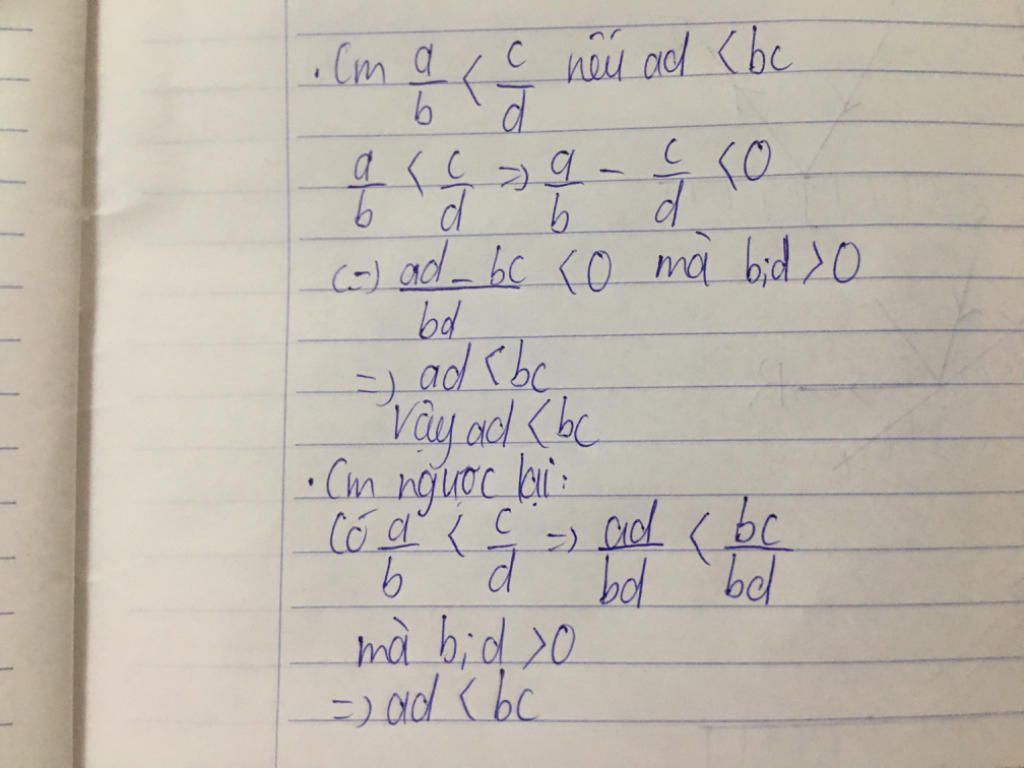 . Cm a/b < c/d nếu ad < bc
a/b < c/d => a/b - c/d < 0
(=) ad - bc/bd < 0 mà b;d > 0
=) ad < bc
Vậy ad < bc
. Cm ngược lại:
Có a/b < c/d => ad/bd < bc/bd
mà b;d > 0
=) ad < bc